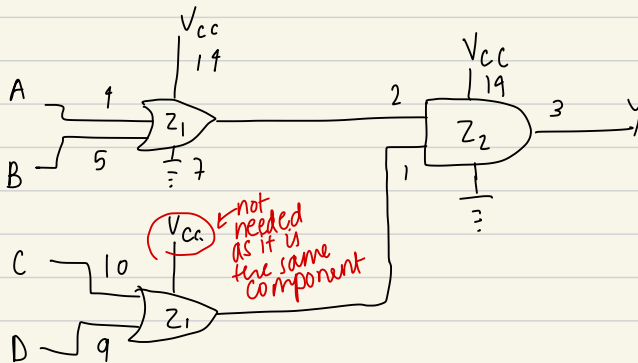 Vcc
14
A
4
Z1
B
5
7
2
Vcc
19
Z2
3
Y
1
Vcc
not
needed
as it is
the same
component
C
10
Z1
D
9